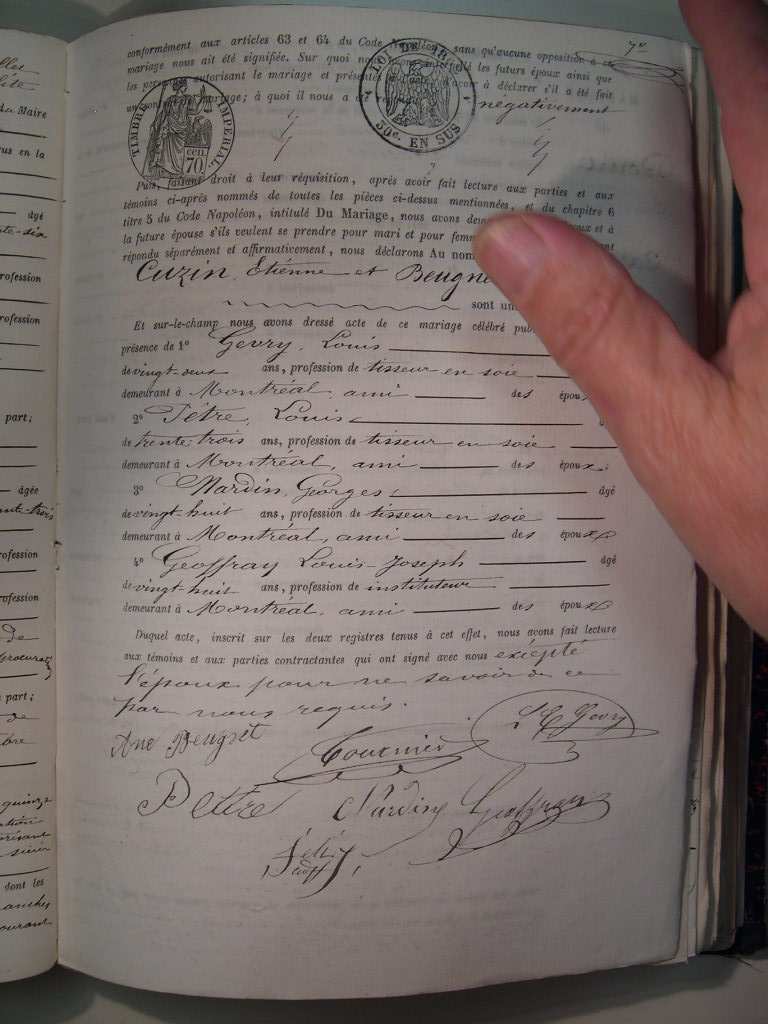 7e
conformément aux articles 63 et 64 du Code Napoléon, sans qu'aucune opposition à ce
mariage nous ait été signifiée. Sur quoi nous avons interpellé les futurs époux ainsi que
les autorisant le mariage et présentes à d'avoir à déclarer s'il a été fait
un contrat de mariage; à quoi il nous a été répondu negativement
TIMBRE IMPÉRIAL
cen. 70
LOI DE
30c. EN SUS
Puis, faisant droit à leur réquisition, après avoir fait lecture aux parties et aux
témoins ci-après nommés de toutes les pièces ci-dessus mentionnées, et du chapitre 6
titre 5 du Code Napoléon, intitulé Du Mariage, nous avons dem époux et à
la future épouse s'ils veulent se prendre pour mari et pour femm
répondu séparément et affirmativement, nous déclarons Au nom
Cuzin, Etienne et Beugne
sont un
Et sur-le-champ nous avons dressé acte de ce mariage célébré pub
présence de 1o Gevry, Louis
de vingt-deux ans, profession de tisseur en soie
demeurant à Montréal, ami des épou
2o Pêtre, Louis
de trente-trois ans, profession de tisseur en soie
demeurant à Montréal, ami des époux
3o Nardin, Georges âgé
de vingt-huit ans, profession de tisseur en soie
demeurant à Montréal, ami des époux
4o Geoffray Louis-Joseph âgé
de vingt-huit ans, profession de instituteur
demeurant à Montréal, ami des époux
Duquel acte, inscrit sur les deux registres tenus à cet effet, nous avons fait lecture
aux témoins et aux parties contractantes qui ont signé avec nous excépté
l'époux pour ne savoir de ce
par nous requis.
Ane Beugnet
Gevry
Pettre Nardin Geoffray
du Maire
us en la
âgé
rofession
rofession
part;
âgée
rofession
rofession
de
part;
de
quinze
dont les